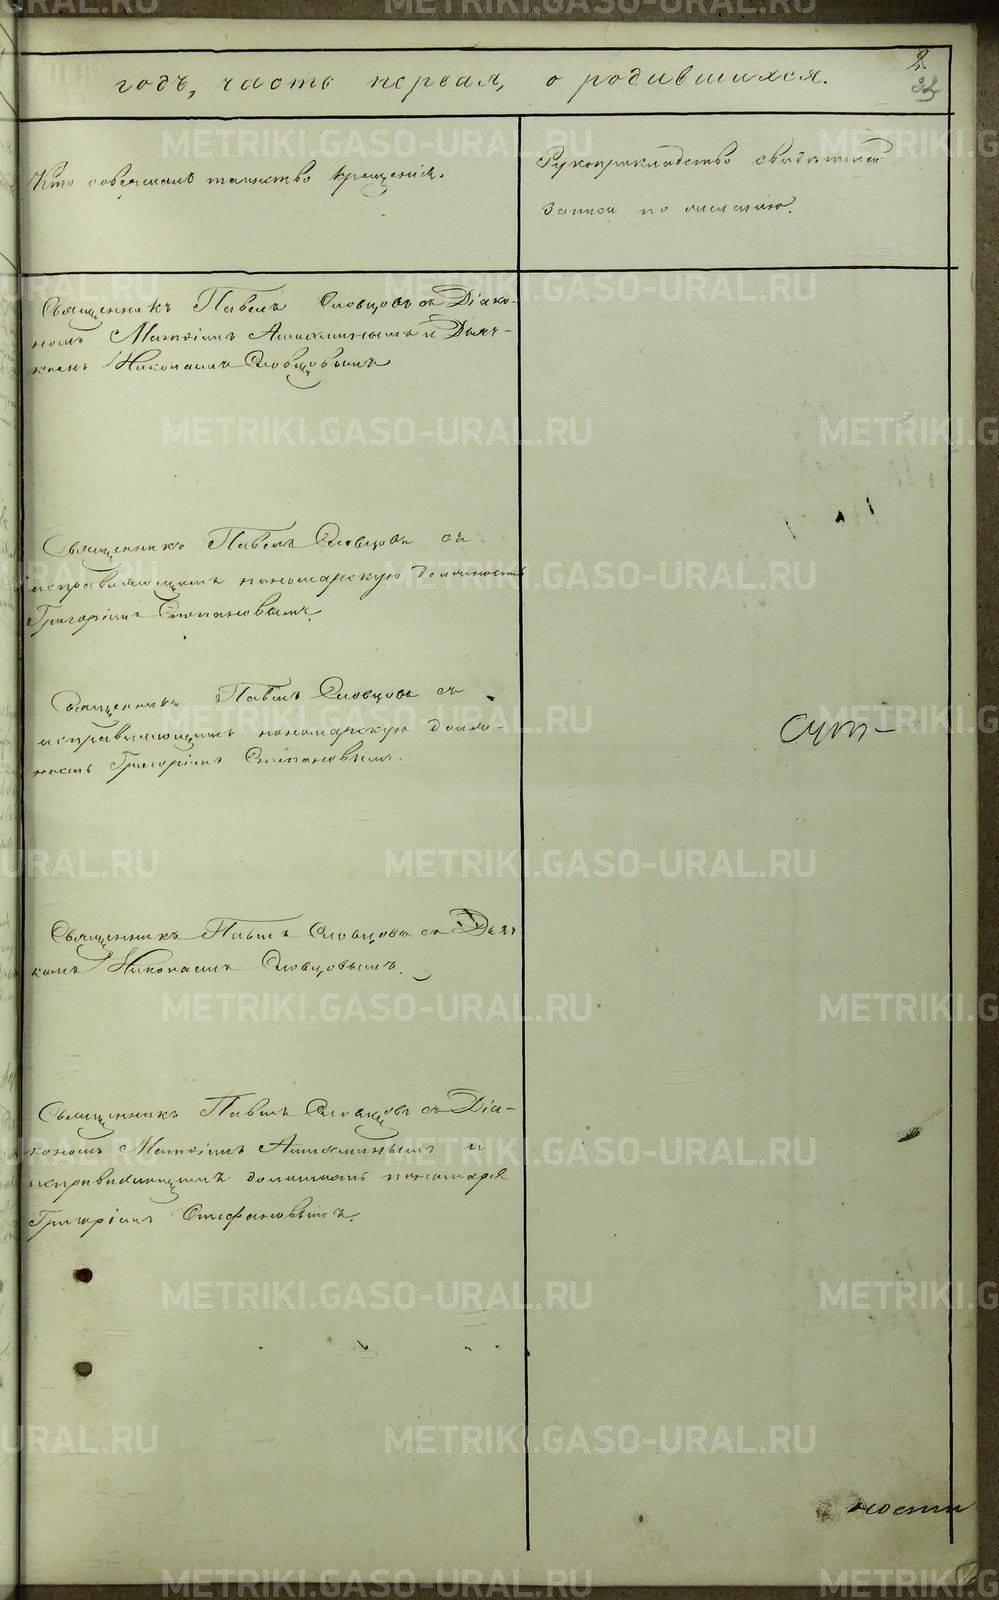 2.
32
годъ, часть первая, о родившихся.
Кто совершалъ таинство крещенія.
Рукоприкладство свидѣтелей
записи по желанію.
Священникъ Павелъ Словцовъ съ Діако-
номъ Матѳіемъ и Дьяч-
комъ Николаемъ Словцовымъ
Священникъ Павелъ Словцовъ съ
исправляющимъ пономарскую должность
Григоріемъ Степановымъ.
Священникъ Павелъ Словцовъ съ
исправляющимъ пономарскую долж-
ность Григоріемъ Степановымъ.
Священникъ Павелъ Словцовъ съ Дьяч-
комъ Николаемъ Словцовымъ.
Священникъ Павелъ Словцовъ съ Діа-
кономъ Матѳіемъ и
исправляющимъ должность пономаря
Григоріемъ Стефановымъ.
ности
METRIKI.GASO-URAL.RU